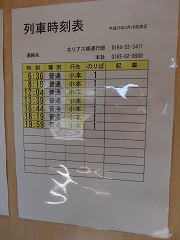 列車時刻表
平成25年3月16日改正
連絡先 北リアス線運行部 0194-52-3411
本社 0193-62-8900
時刻 種別 行先 のりば 記事
6:36 普通 小本 1
8:19 普通 小本 1
12:04 普通 小本 1
13:39 普通 小本 1
16:44 普通 小本 1
18:19 普通 小本 1
19:55 普通 小本 1